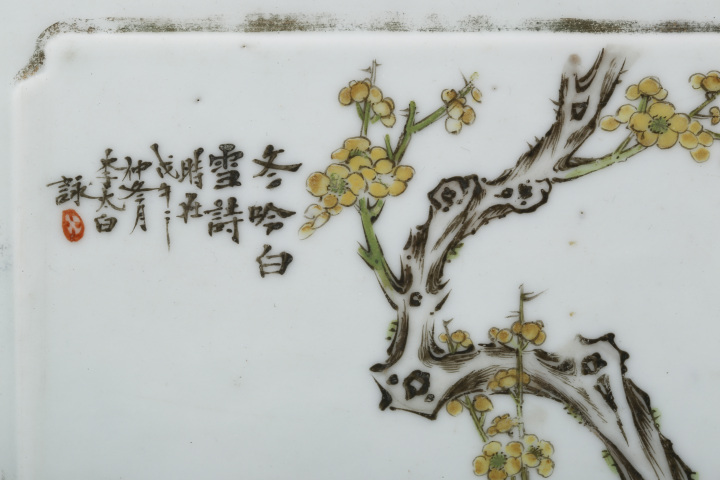 冬吟白
雪詩
時在
戊午二
仲冬月
李太白
詠